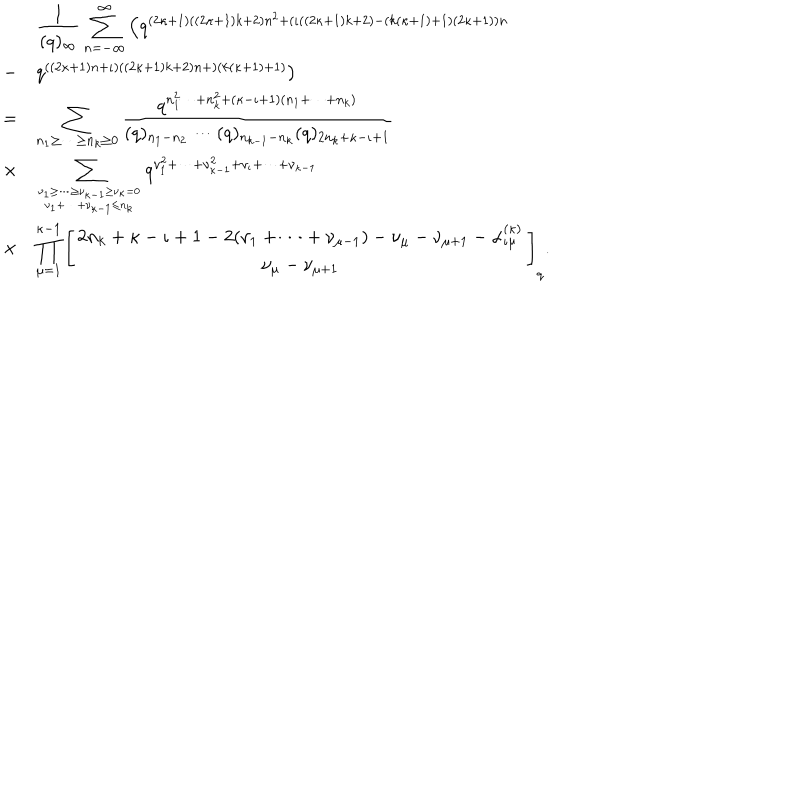 \frac{1}{(q)_\infty} \sum_{n=-\infty}^{\infty} \left( q^{(2\kappa+1)((2\kappa+1)k+2)n^2+(\iota((2\kappa+1)k+2)-(k(\kappa+1)+1)(2\kappa+1))n}
- q^{((2\kappa+1)n+\iota)((2\kappa+1)k+2)n+)(k(\kappa+1)+1)} )
= \sum_{n_1 \geq \cdots \geq n_k \geq 0} \frac{q^{n_1^2 \cdots +n_k^2+(\kappa-\iota+1)(n_1+\cdots+n_k)}}{(q)_{n_1-n_2} \cdots (q)_{n_{k-1}-n_k} (q)_{2n_k+\kappa-\iota+1}}
\times \sum_{\substack{\nu_1 \geq \cdots \geq \nu_{\kappa-1} \geq \nu_\kappa=0 \\ \nu_1+\cdots+\nu_{\kappa-1} \leq n_k}} q^{\nu_1^2+\cdots+\nu_{\kappa-1}^2+\nu_\iota+\cdots+\nu_{\kappa-1}}
\times \prod_{\mu=1}^{\kappa-1} \left[ \begin{matrix} 2n_k+\kappa-\iota+1-2(\nu_1+\cdots+\nu_{\mu-1})-\nu_\mu-\nu_{\mu+1}-\alpha_{\iota\mu}^{(\kappa)} \\ \nu_\mu-\nu_{\mu+1} \end{matrix} \right]_q .